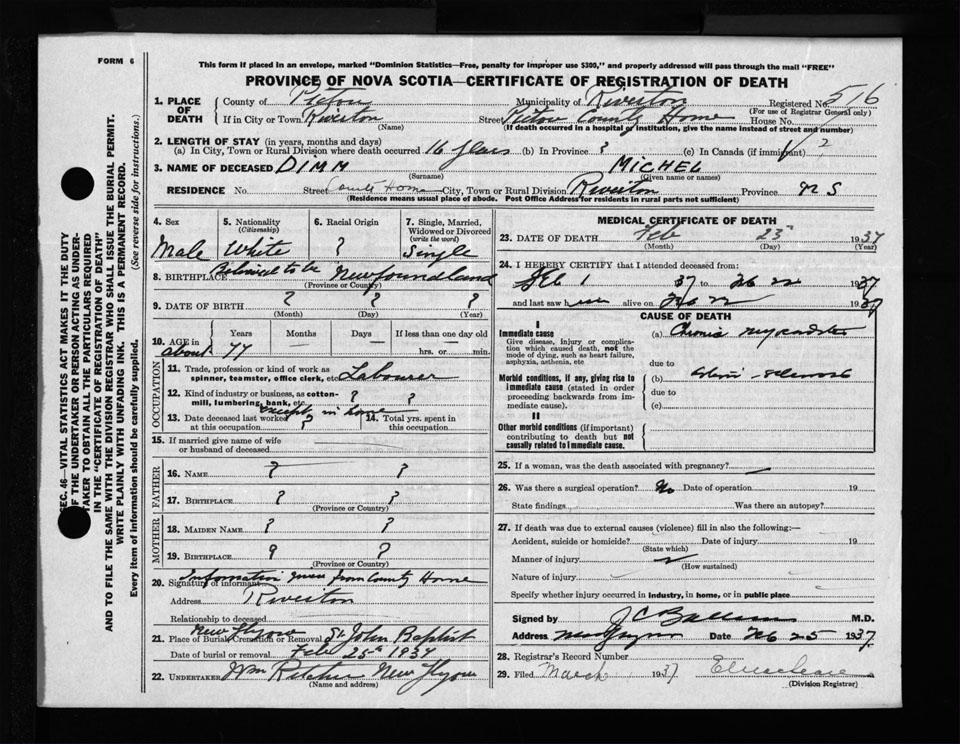 FORM 6
This form if placed in an envelope, marked "Dominion Statistics—Free, penalty for improper use $300," and properly addressed will pass through the mail "FREE"
PROVINCE OF NOVA SCOTIA—CERTIFICATE OF REGISTRATION OF DEATH
SEC. 46—VITAL STATISTICS ACT MAKES IT THE DUTY
OF THE UNDERTAKER OR PERSON ACTING AS UNDER-
TAKER TO OBTAIN ALL THE PARTICULARS REQUIRED
IN THE "CERTIFICATE OF REGISTRATION OF DEATH"
AND TO FILE THE SAME WITH THE DIVISION REGISTRAR WHO SHALL ISSUE THE BURIAL PERMIT.
WRITE PLAINLY WITH UNFADING INK. THIS IS A PERMANENT RECORD.
Every item of information should be carefully supplied. (See reverse side for instructions.)
1. PLACE OF DEATH County of Pictou Municipality of Riverton Registered No. 516
(For use of Registrar General only)
If in City or Town Riverton Street Pictou County Home House No.
(Name) (If death occurred in a hospital or institution, give the name instead of street and number)
2. LENGTH OF STAY (in years, months and days)
(a) In City, Town or Rural Division where death occurred 16 years (b) In Province ? (c) In Canada (if immigrant) ?
3. NAME OF DECEASED DIMM MICHEL
(Surname) (Given name or names)
RESIDENCE No. Street County Home City, Town or Rural Division Riverton Province N S
(Residence means usual place of abode. Post Office Address for residents in rural parts not sufficient)
4. Sex 5. Nationality (Citizenship) 6. Racial Origin 7. Single, Married, Widowed or Divorced (write the word)
Male White ? Single
8. BIRTHPLACE Believed to be Newfoundland
(Province or Country)
9. DATE OF BIRTH ? ? ?
(Month) (Day) (Year)
10. AGE in Years Months Days If less than one day old
about 77 hrs. or min.
OCCUPATION
11. Trade, profession or kind of work as spinner, teamster, office clerk, etc. Labourer
12. Kind of industry or business, as cotton-mill, lumbering, bank, etc. ? ?
except in home
13. Date deceased last worked at this occupation ? 14. Total yrs. spent in this occupation
15. If married give name of wife or husband of deceased
FATHER
16. NAME ? ?
17. BIRTHPLACE ? ?
(Province or Country)
MOTHER
18. MAIDEN NAME ? ?
19. BIRTHPLACE ? ?
(Province or Country)
20. Signature of informant Information given from County Home
Address Riverton
Relationship to deceased
21. Place of Burial, Cremation or Removal St. John Baptist
Date of burial or removal Feb 25th 1937
22. UNDERTAKER Wm
(Name and address)
MEDICAL CERTIFICATE OF DEATH
23. DATE OF DEATH Feb 23 1937
(Month) (Day) (Year)
24. I HEREBY CERTIFY that I attended deceased from:
Feb 1 37 to Feb 22 1937
and last saw alive on Feb 22 1937
CAUSE OF DEATH
I
Immediate cause (a) Chronic
Give disease, injury or complication which caused death, not the mode of dying, such as heart failure, asphyxia, asthenia, etc due to
Morbid conditions, if any, giving rise to immediate cause (stated in order proceeding backwards from immediate cause). (b)
due to
(c)
II
Other morbid conditions (if important) contributing to death but not causally related to immediate cause.
25. If a woman, was the death associated with pregnancy?
26. Was there a surgical operation? No Date of operation 19
State findings Was there an autopsy?
27. If death was due to external causes (violence) fill in also the following:—
Accident, suicide or homicide? Date of injury 19
(State which)
Manner of injury
(How sustained)
Nature of injury
Specify whether injury occurred in industry, in home, or in public place
Signed by J C M.D.
Address Date Feb 25 1937
28. Registrar's Record Number
29. Filed March 1937
(Division Registrar)